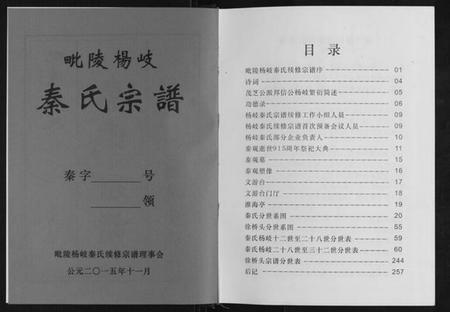 毗陵楊岐
秦氏宗譜
秦字______号
______领
毗陵杨岐秦氏续修宗谱理事会
公元二〇一五年十一月
目录
毗陵杨岐秦氏续修宗谱序 01
诗词 04
茂芝公派邦信公杨岐繁衍简述 05
功德录 06
杨岐秦氏宗谱续修工作小组人员 09
杨岐秦氏续修宗谱首次预备会议人员 09
杨岐秦氏部分企业负责人 10
秦观逝世915周年祭祀大典 11
秦观墓 15
秦观塑像 16
文游台 17
文游台门厅 18
淮海亭 19
秦氏分世系图 20
徐桥头分世系图 55
秦氏杨岐十二世至二十八世分世表 59
秦氏杨岐二十八世至三十二世分世表 60
徐桥头宗谱分世表 244
后记 257